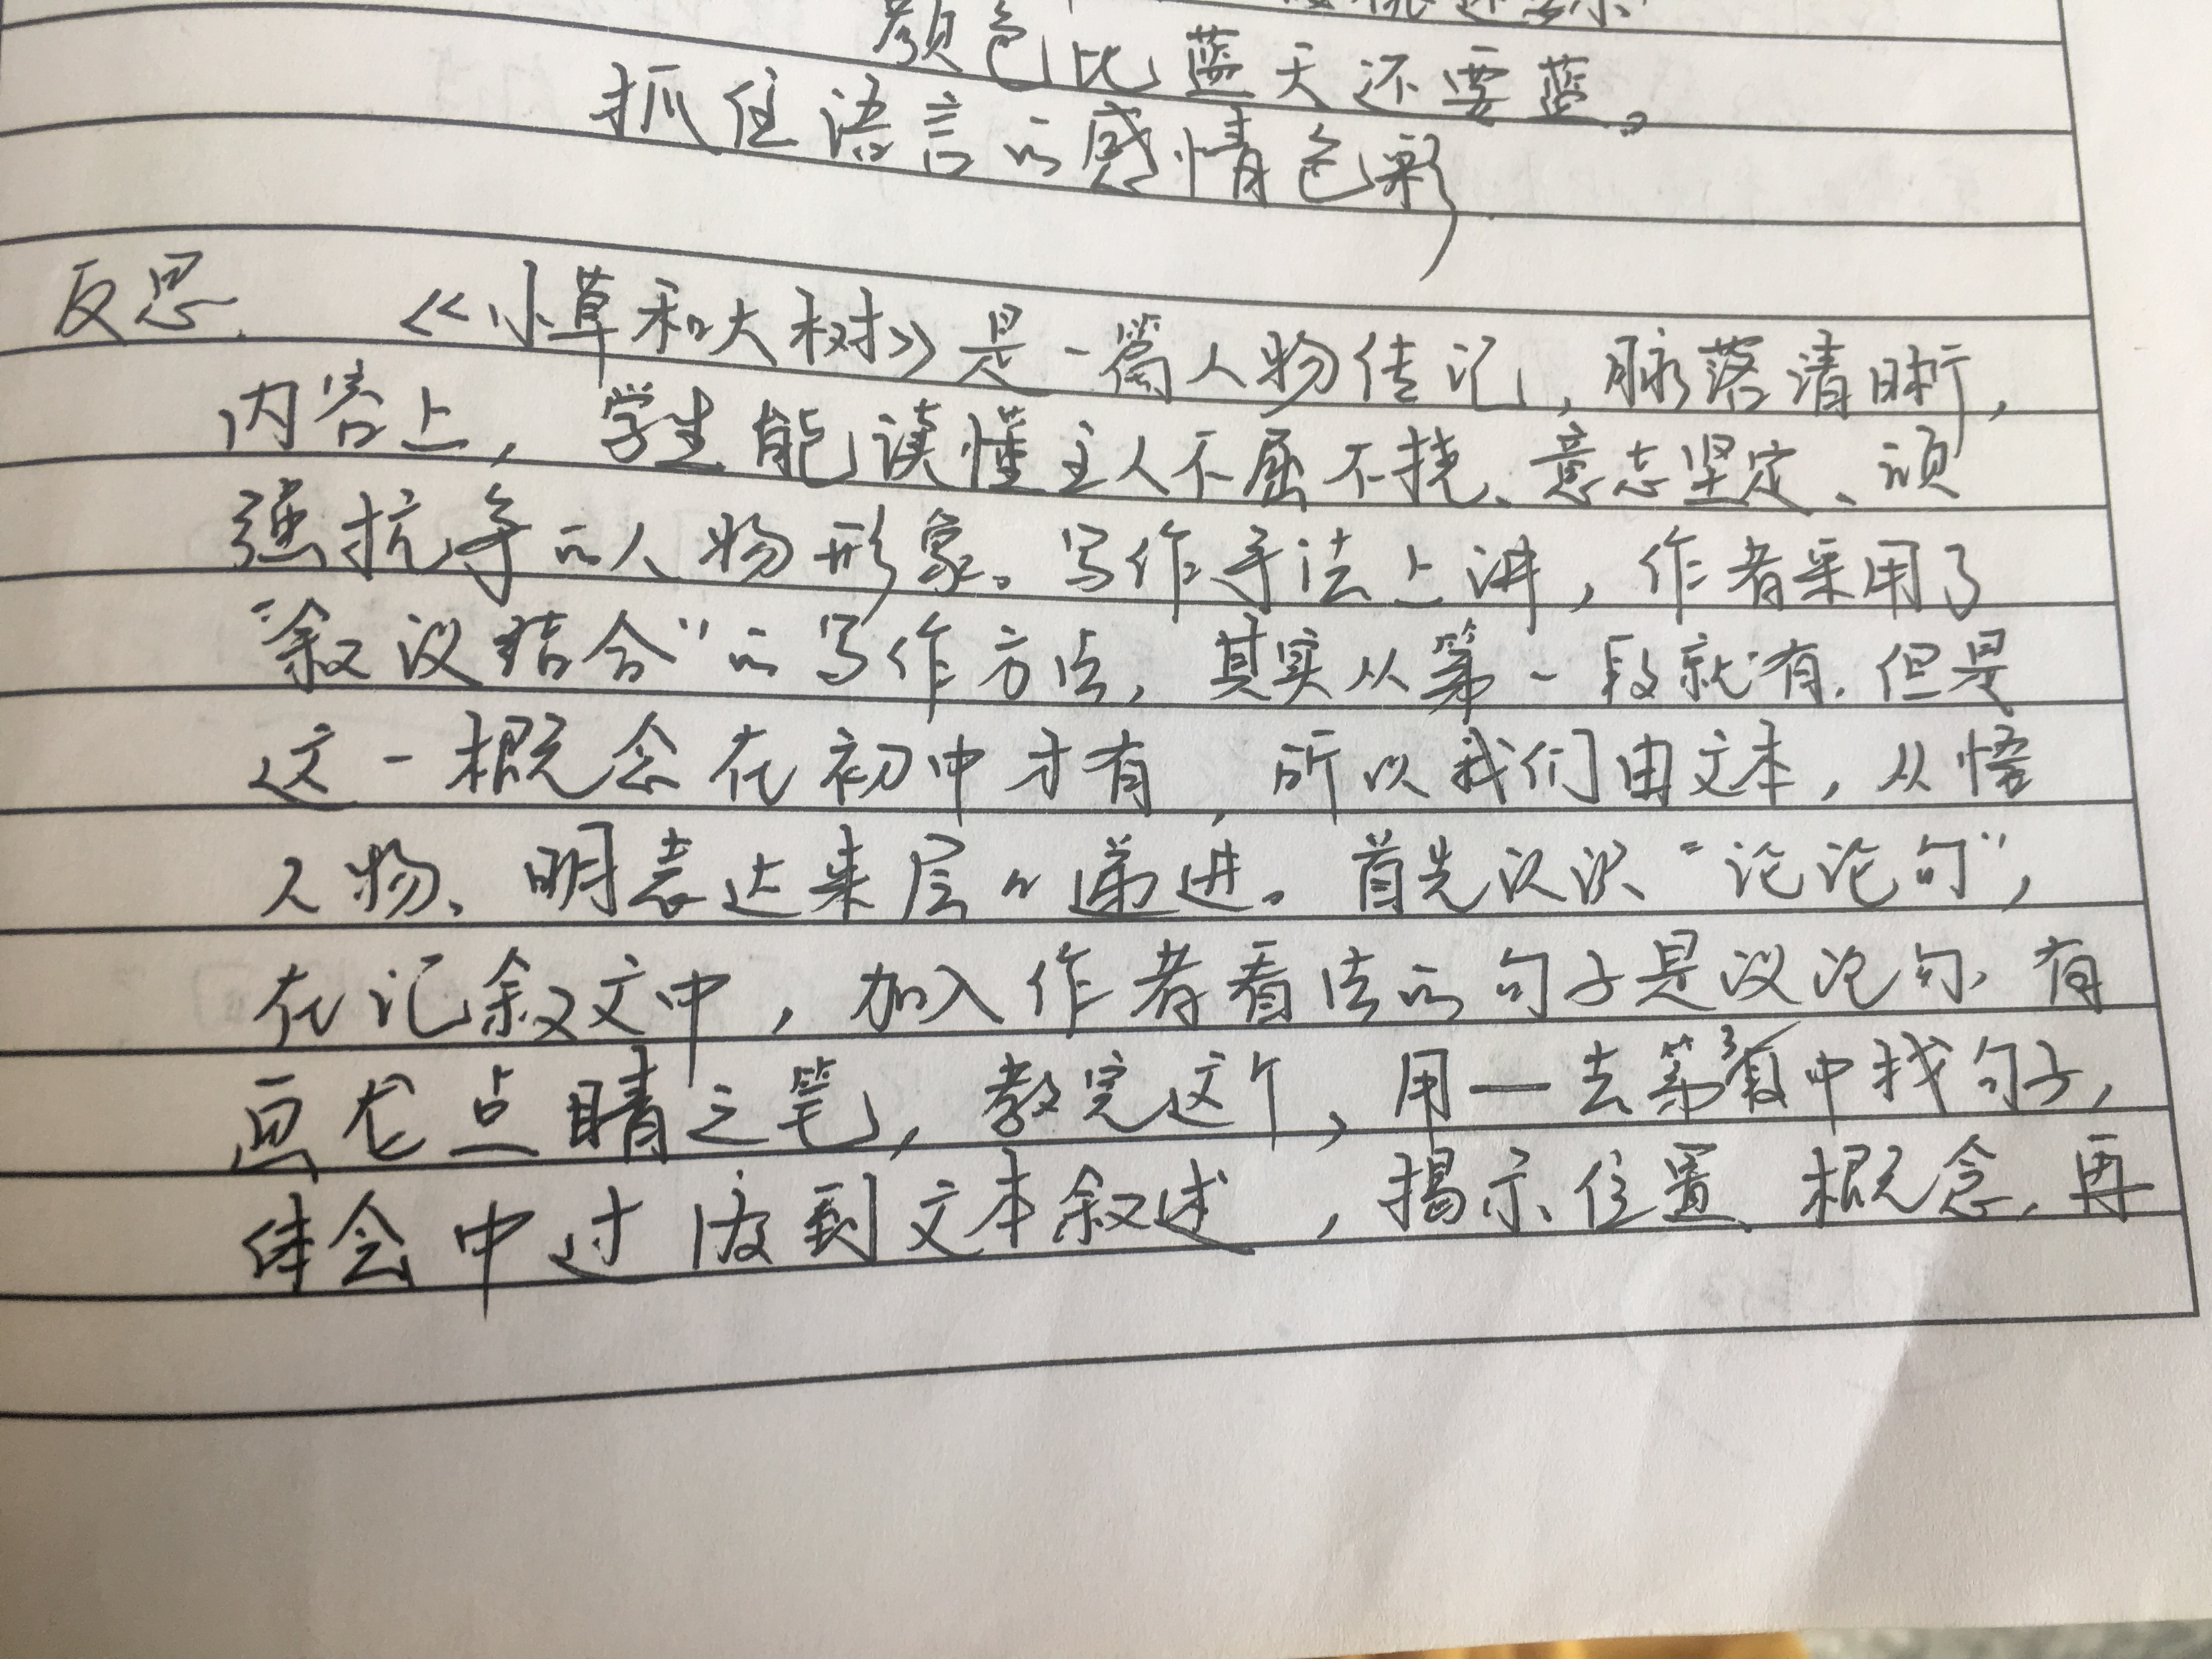 颜色比蓝天还要蓝。
抓住语言的感情色彩
反思. 《小草和大树》是一篇人物传记，脉落清晰，
内容上，学生能读懂主人不屈不挠、意志坚定、顽
强抗争的人物形象。写作手法上讲，作者采用了
“叙议结合”的写作方法，其实从第一段就有.但是
这一概念在初中才有，所以我们由文本，从悟
人物、明表达来层〃递进。首先认识“论论句”，
在记叙文中，加入作者看法的句子是议论句、有
画龙点睛之笔，教完这个，用一去第3段中找句子，
体会中过渡到文本叙述，揭示位置、概念，再